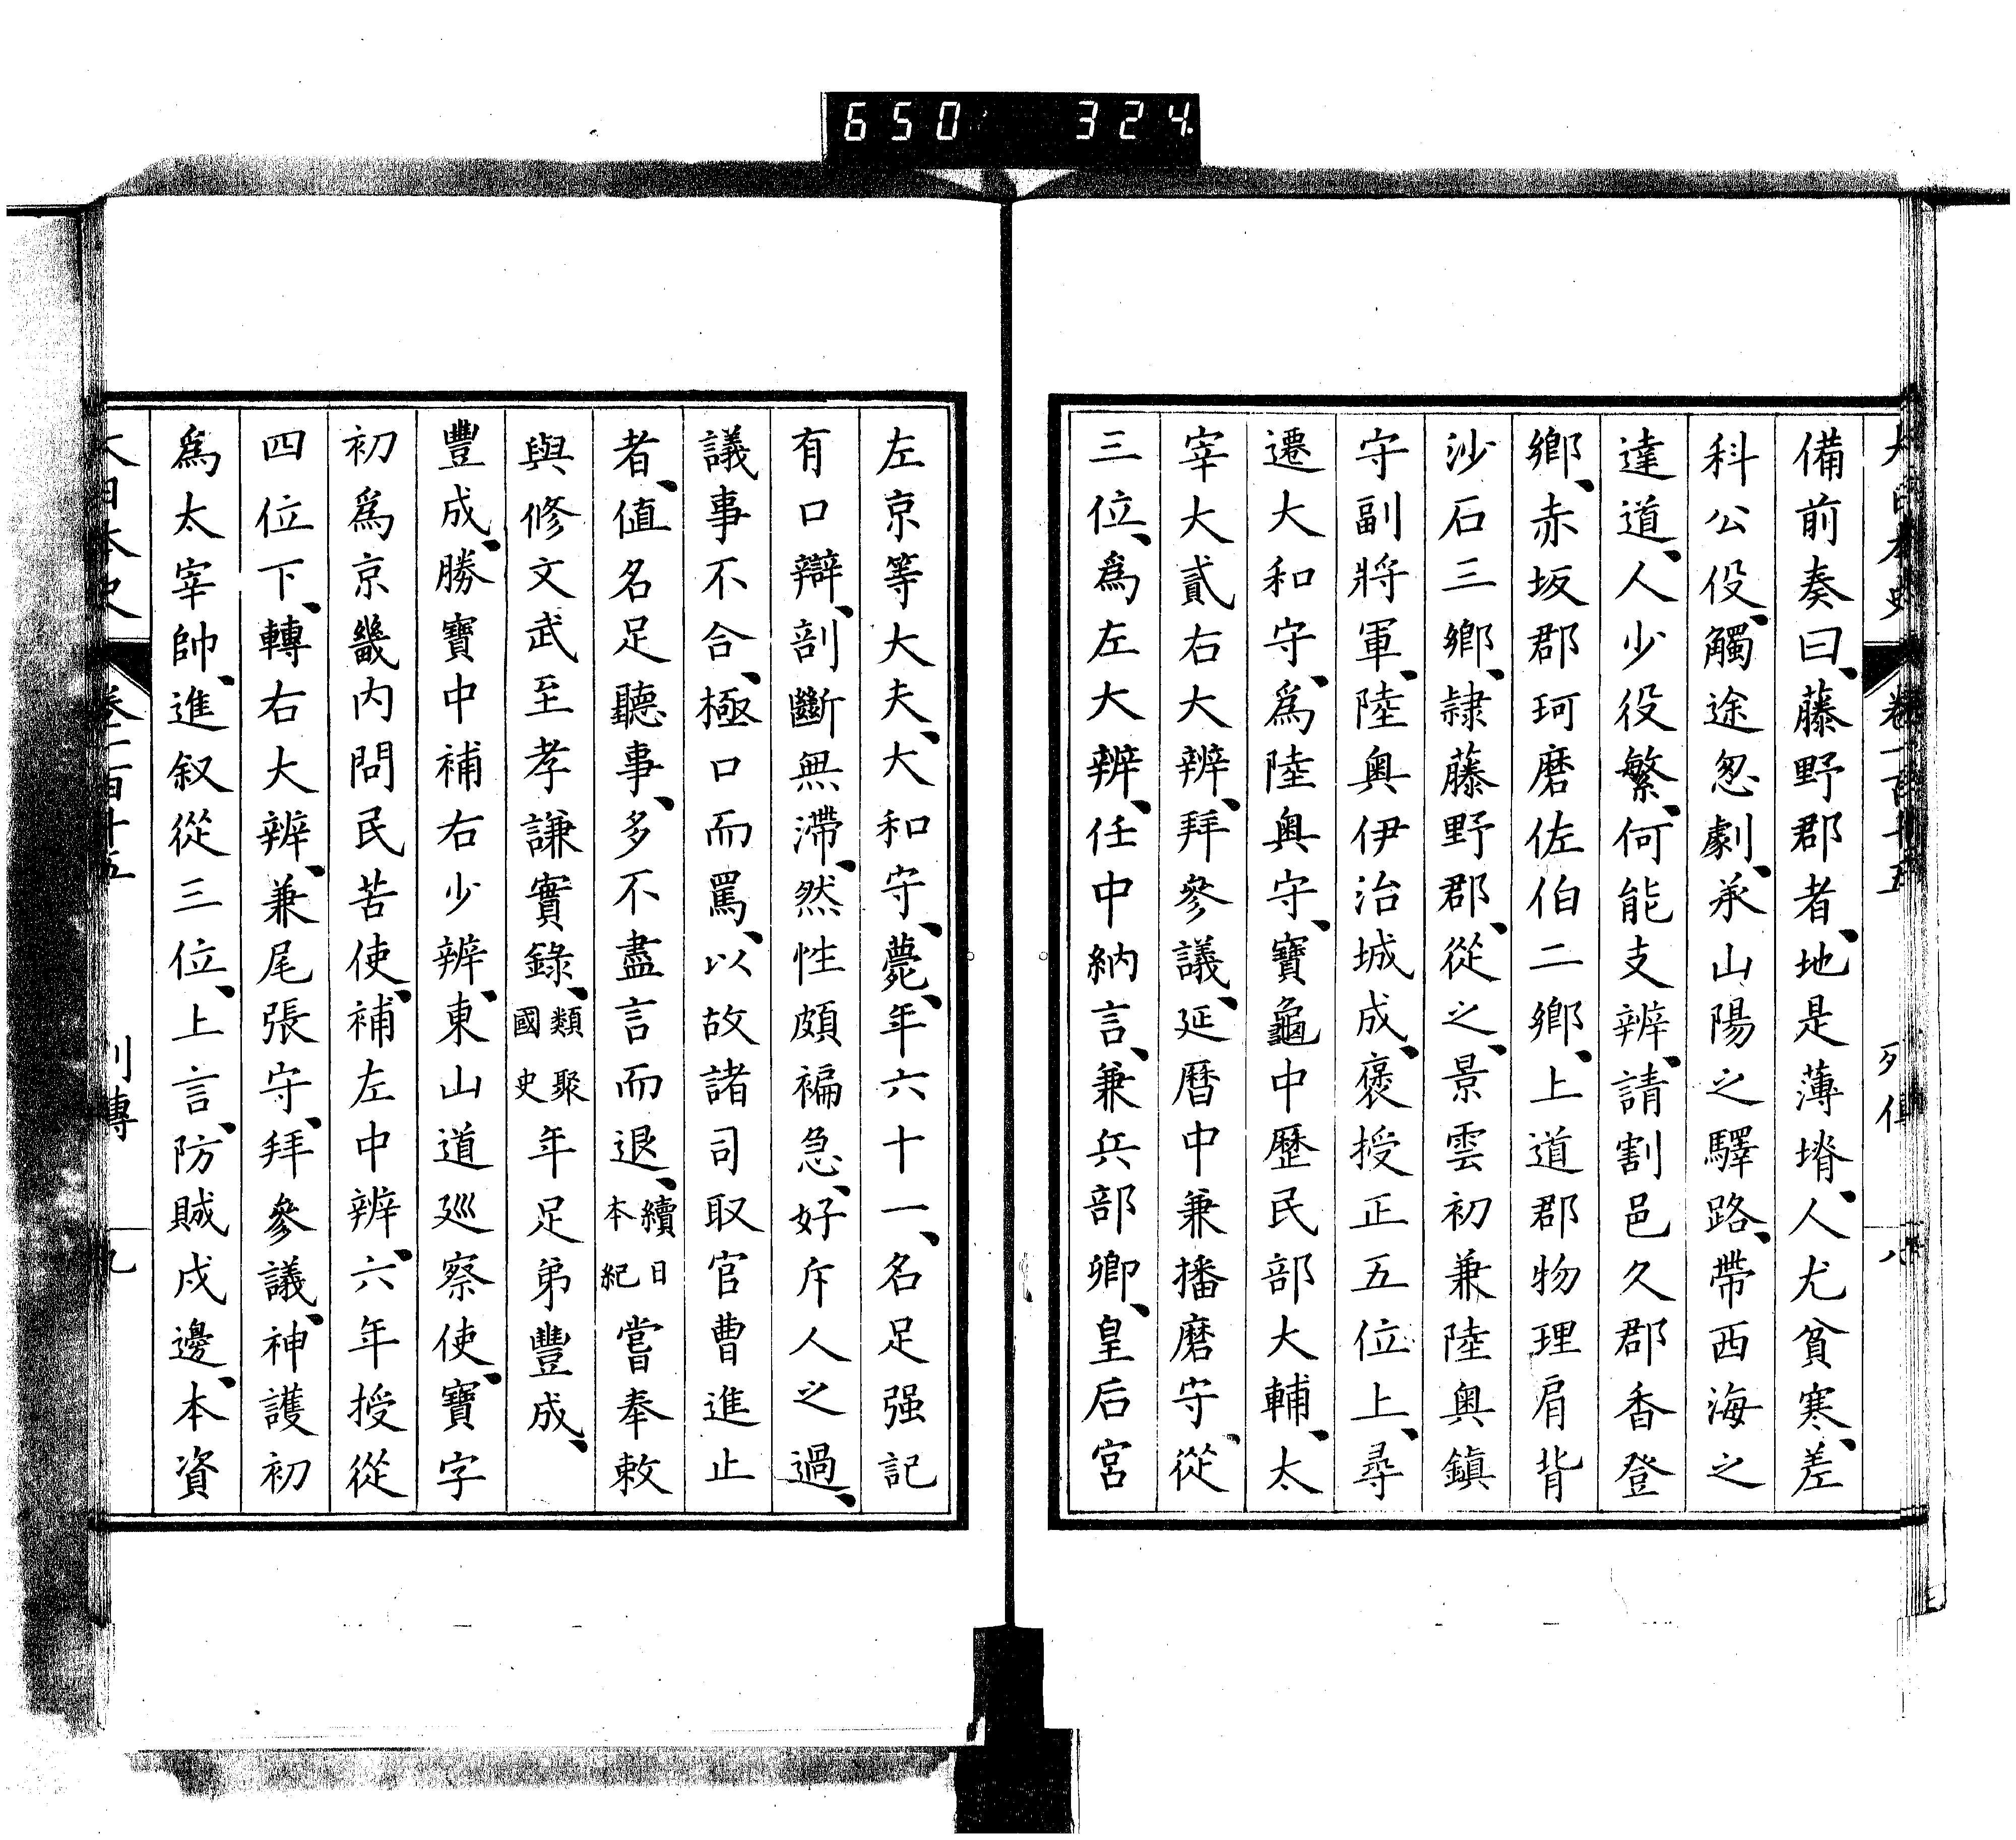 650 324
大日本史 卷一百十五 列傳 八
備前奏曰、藤野郡者、地是薄塉、人尤貧寒、差
科公役、觸途怱劇、承山陽之驛路、帶西海之
達道、人少役繁、何能支辨、請割邑久郡香登
鄉、赤坂郡珂磨佐伯二鄉、上道郡物理肩背
沙石三鄉、隷藤野郡、從之、景雲初兼陸奧鎭
守副將軍、陸奧伊治城成、褒授正五位上、尋
遷大和守、爲陸奧守、寶龜中歷民部大輔、太
宰大貳右大辨、拜參議、延曆中兼播磨守、從
三位、爲左大辨、任中納言、兼兵部卿、皇后宮
左京等大夫、大和守、薨、年六十一、名足强記
有口辯、剖斷無滯、然性頗褊急、好斥人之過、
議事不合、極口而罵、以故諸司取官曹進止
者、値名足聽事、多不盡言而退、續日本紀嘗奉敕
與修文武至孝謙實錄、類聚國史年足弟豐成、
豐成、勝寶中補右少辨、東山道廵察使、寶字
初爲京畿内問民苦使、補左中辨、六年授從
四位下、轉右大辨、兼尾張守、拜參議、神護初
爲太宰帥、進叙從三位、上言、防賊戍邊、本資
大日本史 卷一百十五 列傳 九